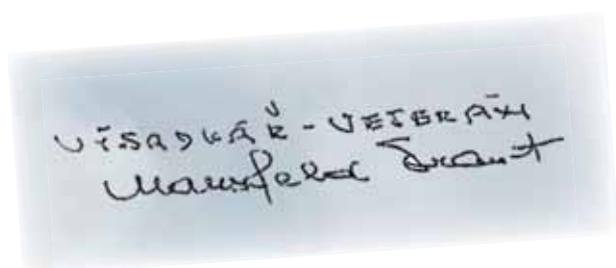 VÍSADKÁŘ - VETERÁN
Mansfeld Drant